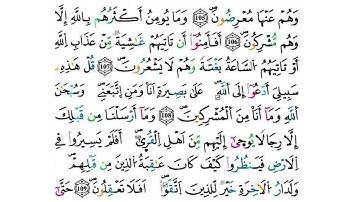 وَهُمْ عَنْهَا مُعْرِضُونَ ۝١٠٥ وَمَا يُؤْمِنُ أَكْثَرُهُم بِاللَّهِ إِلَّا
وَهُم مُّشْرِكُونَ ۝١٠٦ أَفَأَمِنُوا أَن تَأْتِيَهُمْ غَٰشِيَةٌ مِّنْ عَذَابِ اللَّهِ
أَوْ تَأْتِيَهُمُ السَّاعَةُ بَغْتَةً وَهُمْ لَا يَشْعُرُونَ ۝١٠٧ قُلْ هَٰذِهِ
سَبِيلِي أَدْعُوا إِلَى اللَّهِ عَلَىٰ بَصِيرَةٍ أَنَا وَمَنِ اتَّبَعَنِي وَسُبْحَٰنَ
اللَّهِ وَمَا أَنَا مِنَ الْمُشْرِكِينَ ۝١٠٨ وَمَا أَرْسَلْنَا مِن قَبْلِكَ
إِلَّا رِجَالًا يُوحَىٰ إِلَيْهِم مِّنْ أَهْلِ الْقُرَىٰ أَفَلَمْ يَسِيرُوا فِي
الْأَرْضِ فَيَنظُرُوا كَيْفَ كَانَ عَٰقِبَةُ الَّذِينَ مِن قَبْلِهِمْ
وَلَدَارُ الْآخِرَةِ خَيْرٌ لِّلَّذِينَ اتَّقَوْا أَفَلَا تَعْقِلُونَ ۝١٠٩ حَتَّىٰ